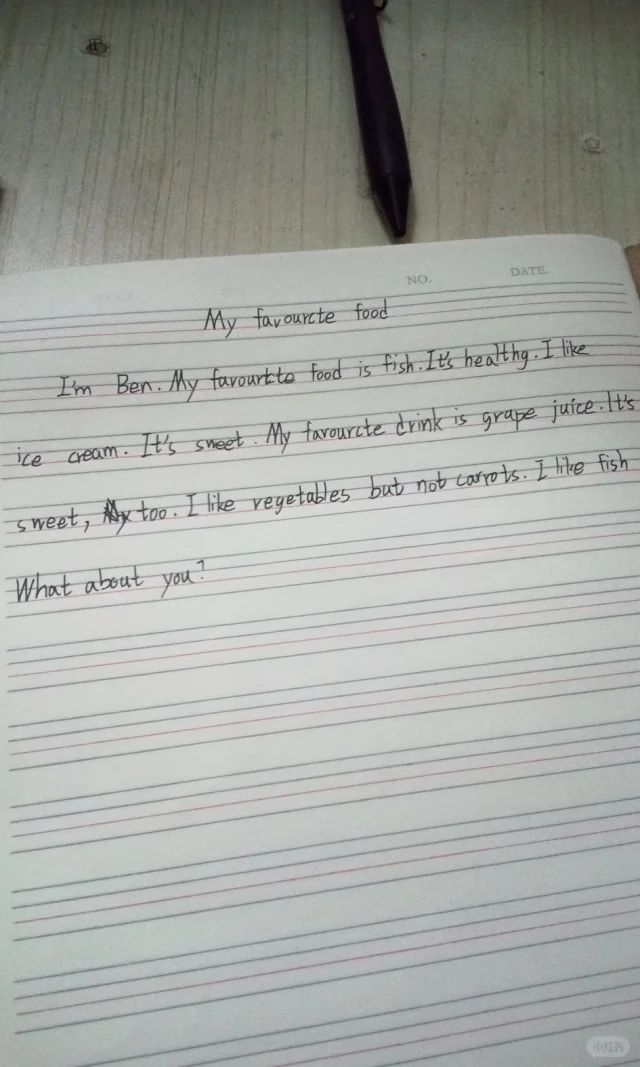 NO. DATE.
My favourcte food
I'm Ben. My favourtte food is fish. It's healthy. I like
ice cream. It's sweet. My favourcte drink is grape juice. It's
sweet, too. I like vegetables but not carrots. I like fish
What about you?
小红书